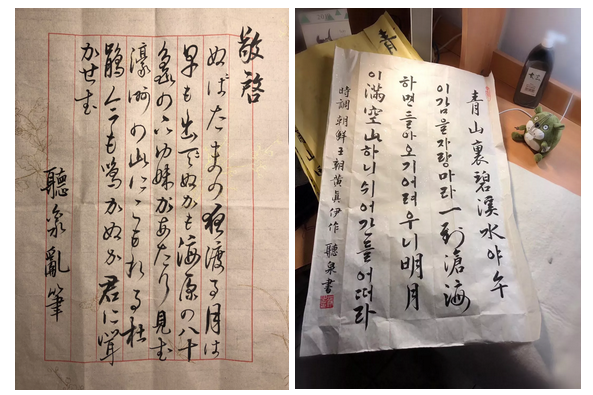 敬啓
ぬばたまの夜渡る月は
早も出でぬかも海原の八十
島の上ゆ妹があたり見む
濠洲の山にこもれる杜
鵑今も鳴かぬか君に聞
かせむ
聽泉亂筆
靑山裏碧溪水야 수
이감을자랑마라 一到滄海
하면돌아오기어려우니明月
이滿空山하니쉬어간들어떠라
時調 朝鮮王朝黃眞伊作 聽泉書